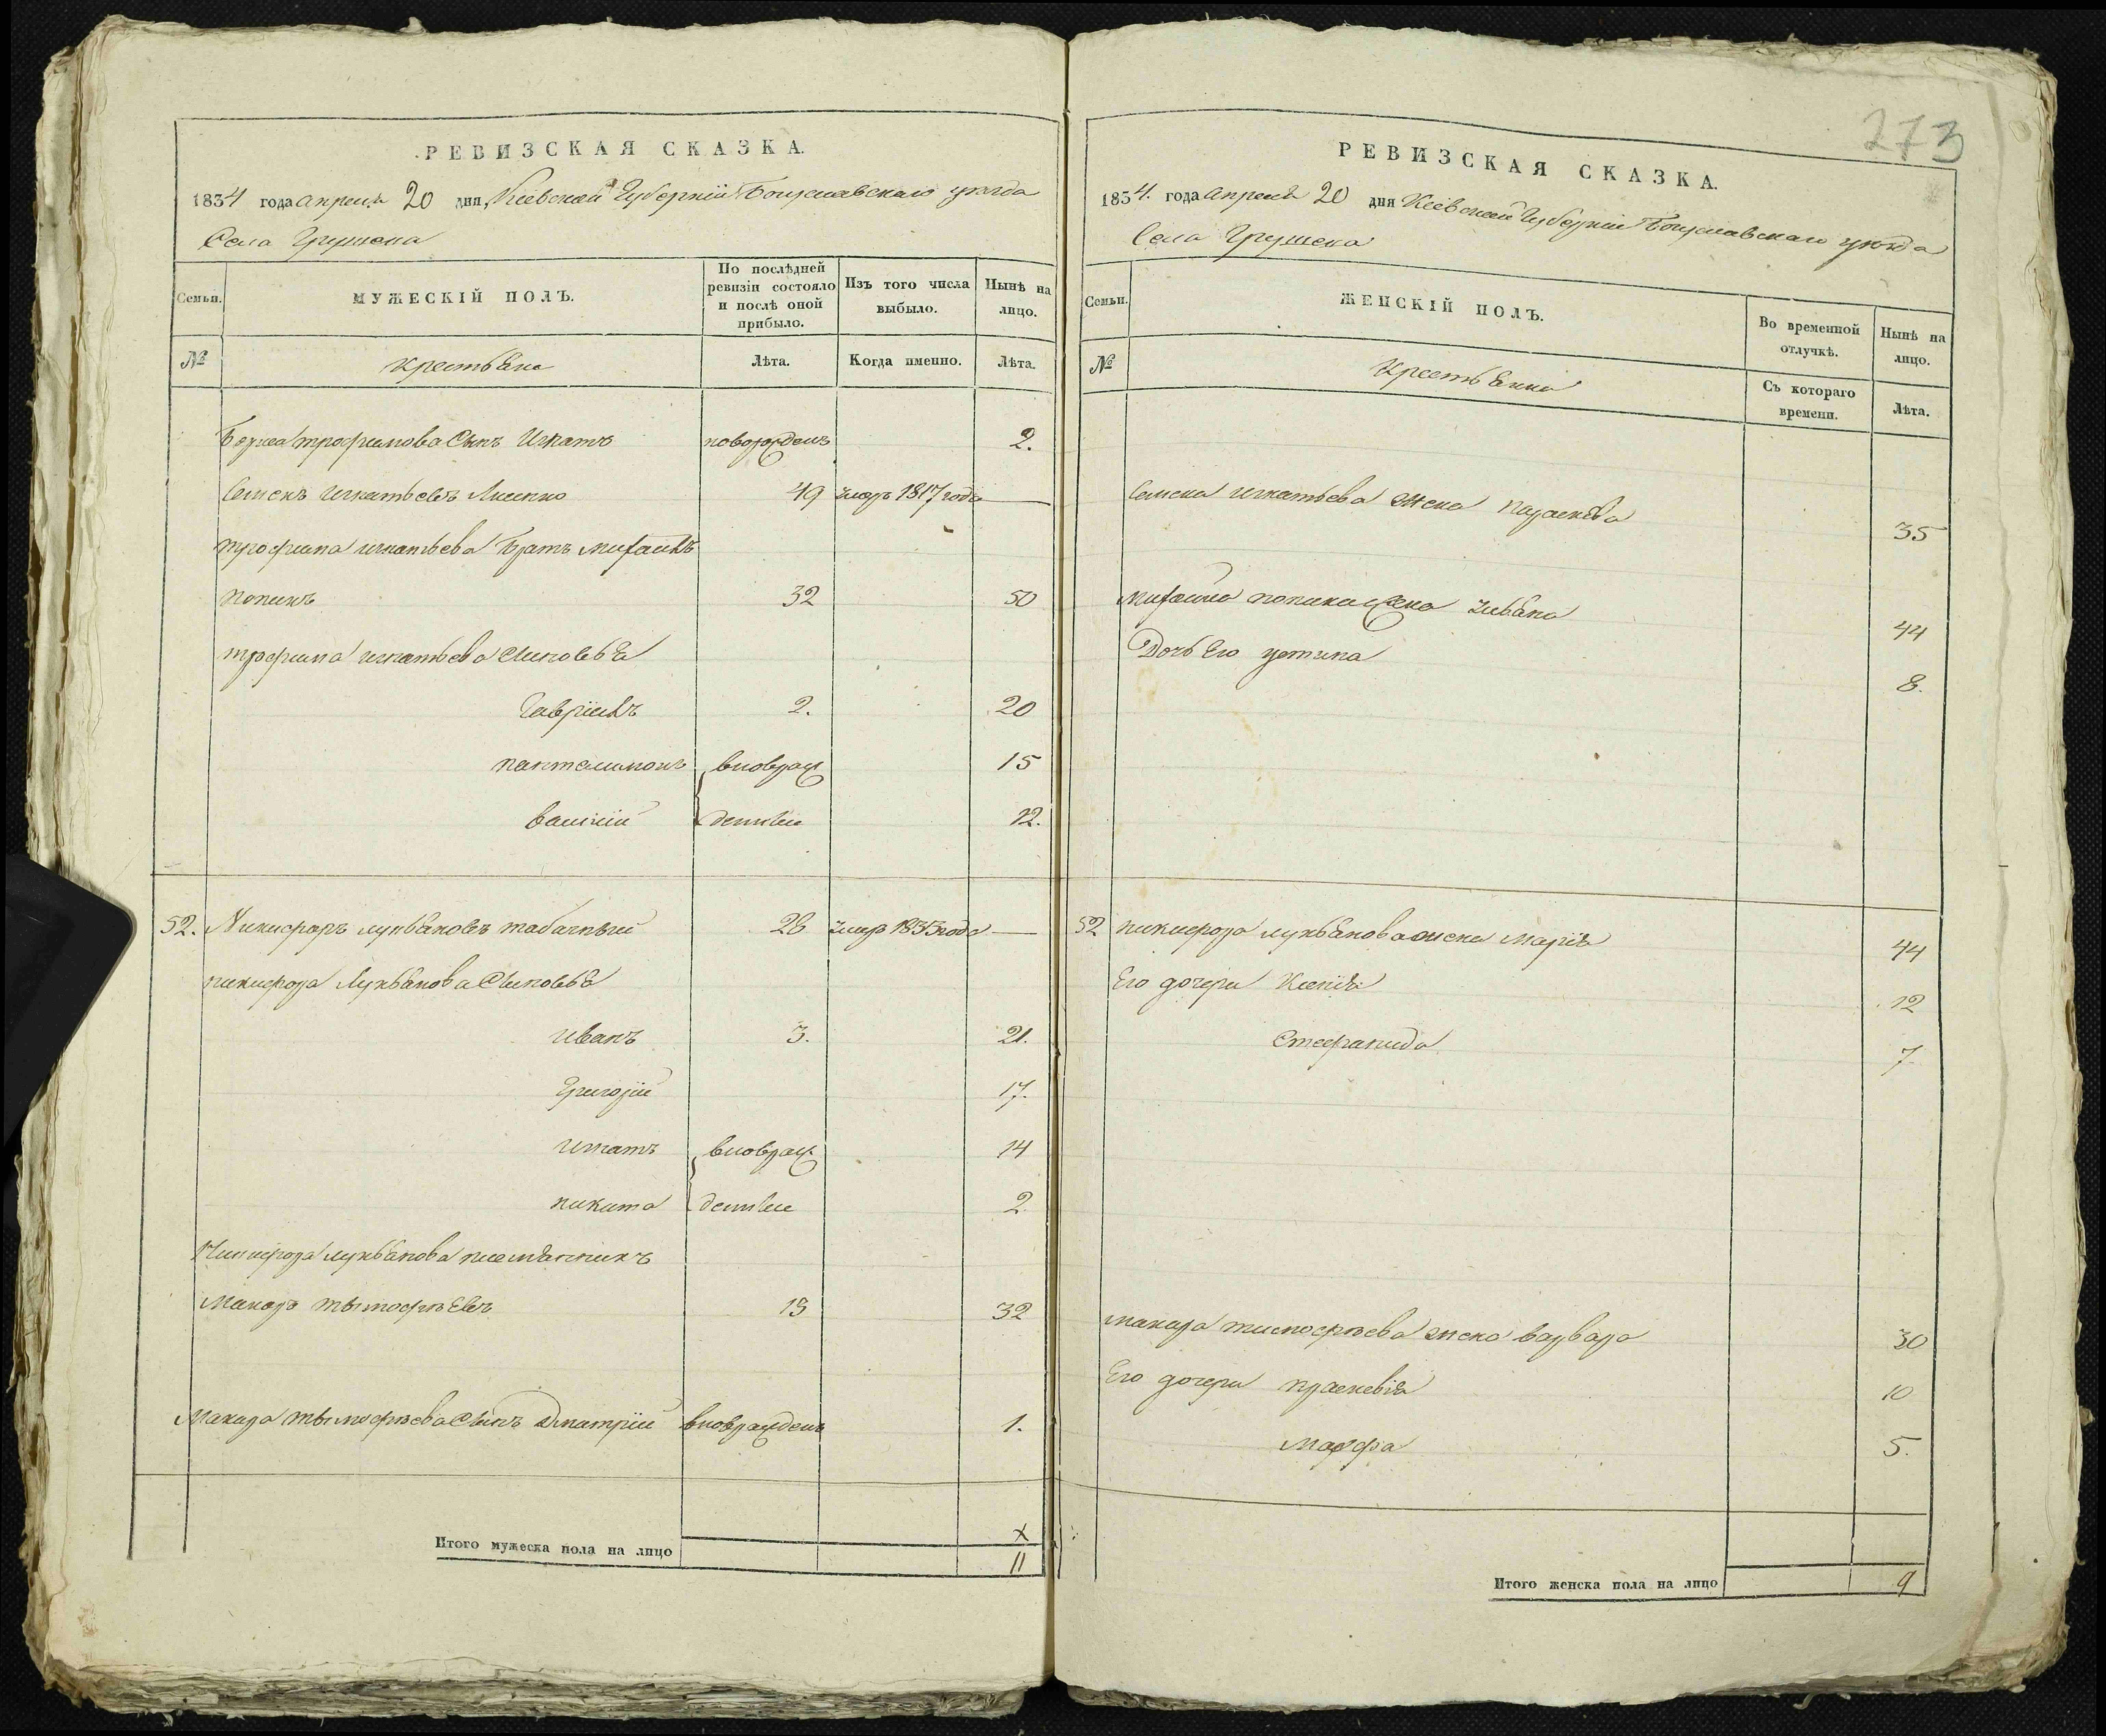 РЕВИЗСКАЯ СКАЗКА.
1834 года апреля 20 дня, Кіевской Губерніи Богуславскаго уезда
Села Грушева
Семьи.
МУЖЕСКІЙ ПОЛЪ.
По послѣдней ревизіи состояло и послѣ оной прибыло.
Изъ того числа выбыло.
Нынѣ на лицо.
№
крестьяне
Лѣта.
Когда именно.
Лѣта.
трофимова Сынъ Игнатъ новорожденъ 2.
Семенъ Игнатьевъ 49 умеръ 1817 года —
трофима игнатьева Братъ Михаилъ
попикъ 32 50
трофима игнатьева Сыновья
Гавріилъ 2. 20
панталимонъ вновьрож 15
василій денные 12.
52. Никифоръ лукьяновъ табачный 28 умеръ 1833 года —
никифора Лукьянова Сыновья
иванъ 3. 21.
Григорій 17.
игнатъ вновьрож 14
никита денные 2
Никифора лукьянова племянникъ
Макаръ тымофѣевъ 15 32
Макара тымофѣева Сынъ Дматрій вновьрожденъ 1.
Итого мужеска пола на лицо
х
11
273
РЕВИЗСКАЯ СКАЗКА.
1834. года апреля 20 дня Кіевской Губерніи Богуславскаго уезда
Села Грушева
Семьи.
ЖЕНСКІЙ ПОЛЪ.
Во временной отлучкѣ.
Нынѣ на лицо.
№
Крестьянки
Съ котораго времени.
Лѣта.
Семена игнатьева жена параскева 35
Михайла попика жена 44
Дочь Его устина 8.
52 никифора лукьянова жена Марія 44
Его дочери Ксенія 12
Стефанида 7
макара тимофѣева жена варвара 30
Его дочери праскевія 10
Марфа 5.
Итого женска пола на лицо 9